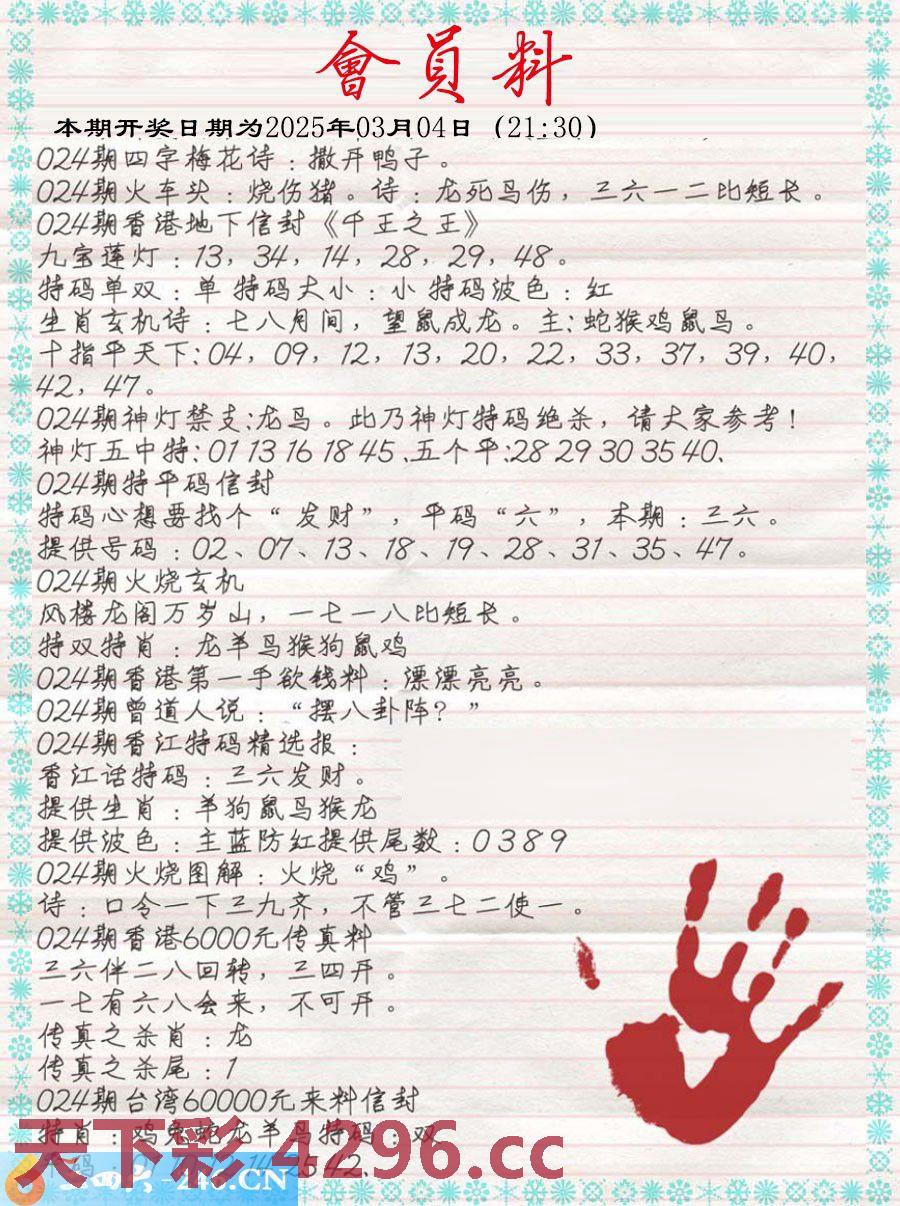 會員料
本期开奖日期为2025年03月04日（21:30）
024期四字梅花诗：撒开鸭子。
024期火车头：烧伤猪。诗：龙死鸟伤，三六一二比短长。
024期香港地下信封《千王之王》
九宝莲灯：13，34，14，28，29，48。
特码单双：单 特码大小：小 特码波色：红
生肖玄机诗：七八月间，望鼠成龙。主：蛇猴鸡鼠鸟。
十指平天下：04，09，12，13，20，22，33，37，39，40，
42，47。
024期神灯禁支:龙鸟。此乃神灯特码绝杀，请大家参考！
神灯五中特:01 13 16 18 45、五个平:28 29 30 35 40、
024期特平码信封
特码心想要找个“发财”，平码“六”，本期：三六。
提供号码：02、07、13、18、19、28、31、35、47。
024期火烧玄机
风楼龙阁万岁山，一七一八比短长。
特双特肖：龙羊鸟猴狗鼠鸡
024期香港第一手欲钱料：漂漂亮亮。
024期曾道人说：“摆八卦阵？”
024期香江特码精选报：
香江话特码：三六发财。
提供生肖：羊狗鼠鸟猴龙
提供波色：主蓝防红提供尾数：0389
024期火烧图解：火烧“鸡”。
诗：口令一下三九齐，不管三七二使一。
024期香港6000元传真料
三六伴二八回转，三四开。
一七有六八会来，不可开。
传真之杀肖：龙
传真之杀尾：1
024期台湾60000元来料信封
特肖：鸡兔蛇龙羊鸟特码：双
天下彩 4296.cc
246.CN